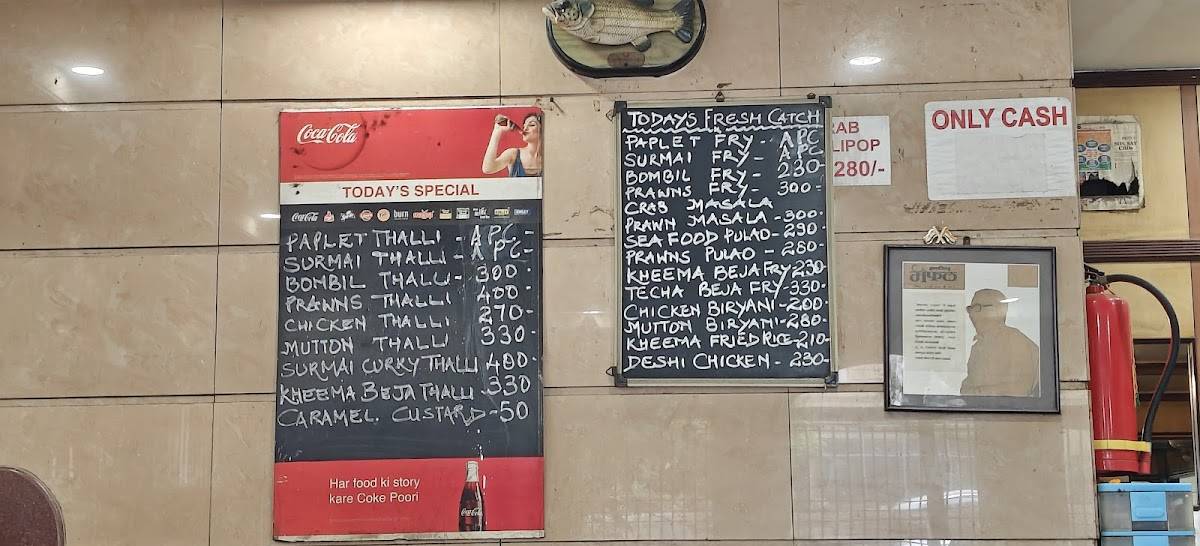 Coca-Cola
TODAY'S SPECIAL
Coca-Cola
burn
PAPLET THALLI - APC -
SURMAI THALLI - APC -
BOMBIL THALLI - 300 -
PRAWNS THALLI 400 -
CHICKEN THALLI 270 -
MUTTON THALLI 330 -
SURMAI CURRY THALLI 400 -
KHEEMA BEJA THALLI - 330
CARAMEL CUSTARD - 50
Har food ki story
kare Coke Poori
Coca-Cola
TODAYS FRESH CATCH
PAPLET FRY - APC
SURMAI FRY - APC
BOMBIL FRY - 230 -
PRAWNS FRY - 300 -
CRAB MASALA
PRAWN MASALA - 300 -
SEA FOOD PULAO - 290
PRAWNS PULAO - 280 -
KHEEMA BEJA FRY 230
TECHA BEJA FRY - 330 -
CHICKEN BIRYANI - 200 -
MUTTON BIRYANI - 280 -
KHEEMA FRIED RICE - 210 -
DESHI CHICKEN - 230 -
RAB
LIPOP
280/-
ONLY CASH